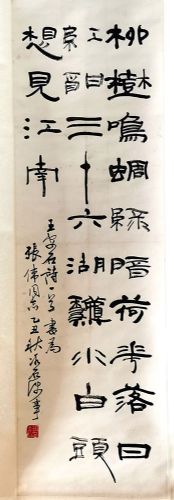 柳樹鳴蜩綠暗荷花落日
紅酣三十六湖水白頭
想見江南
王安石詩一首書為
張偉同志乙丑秋